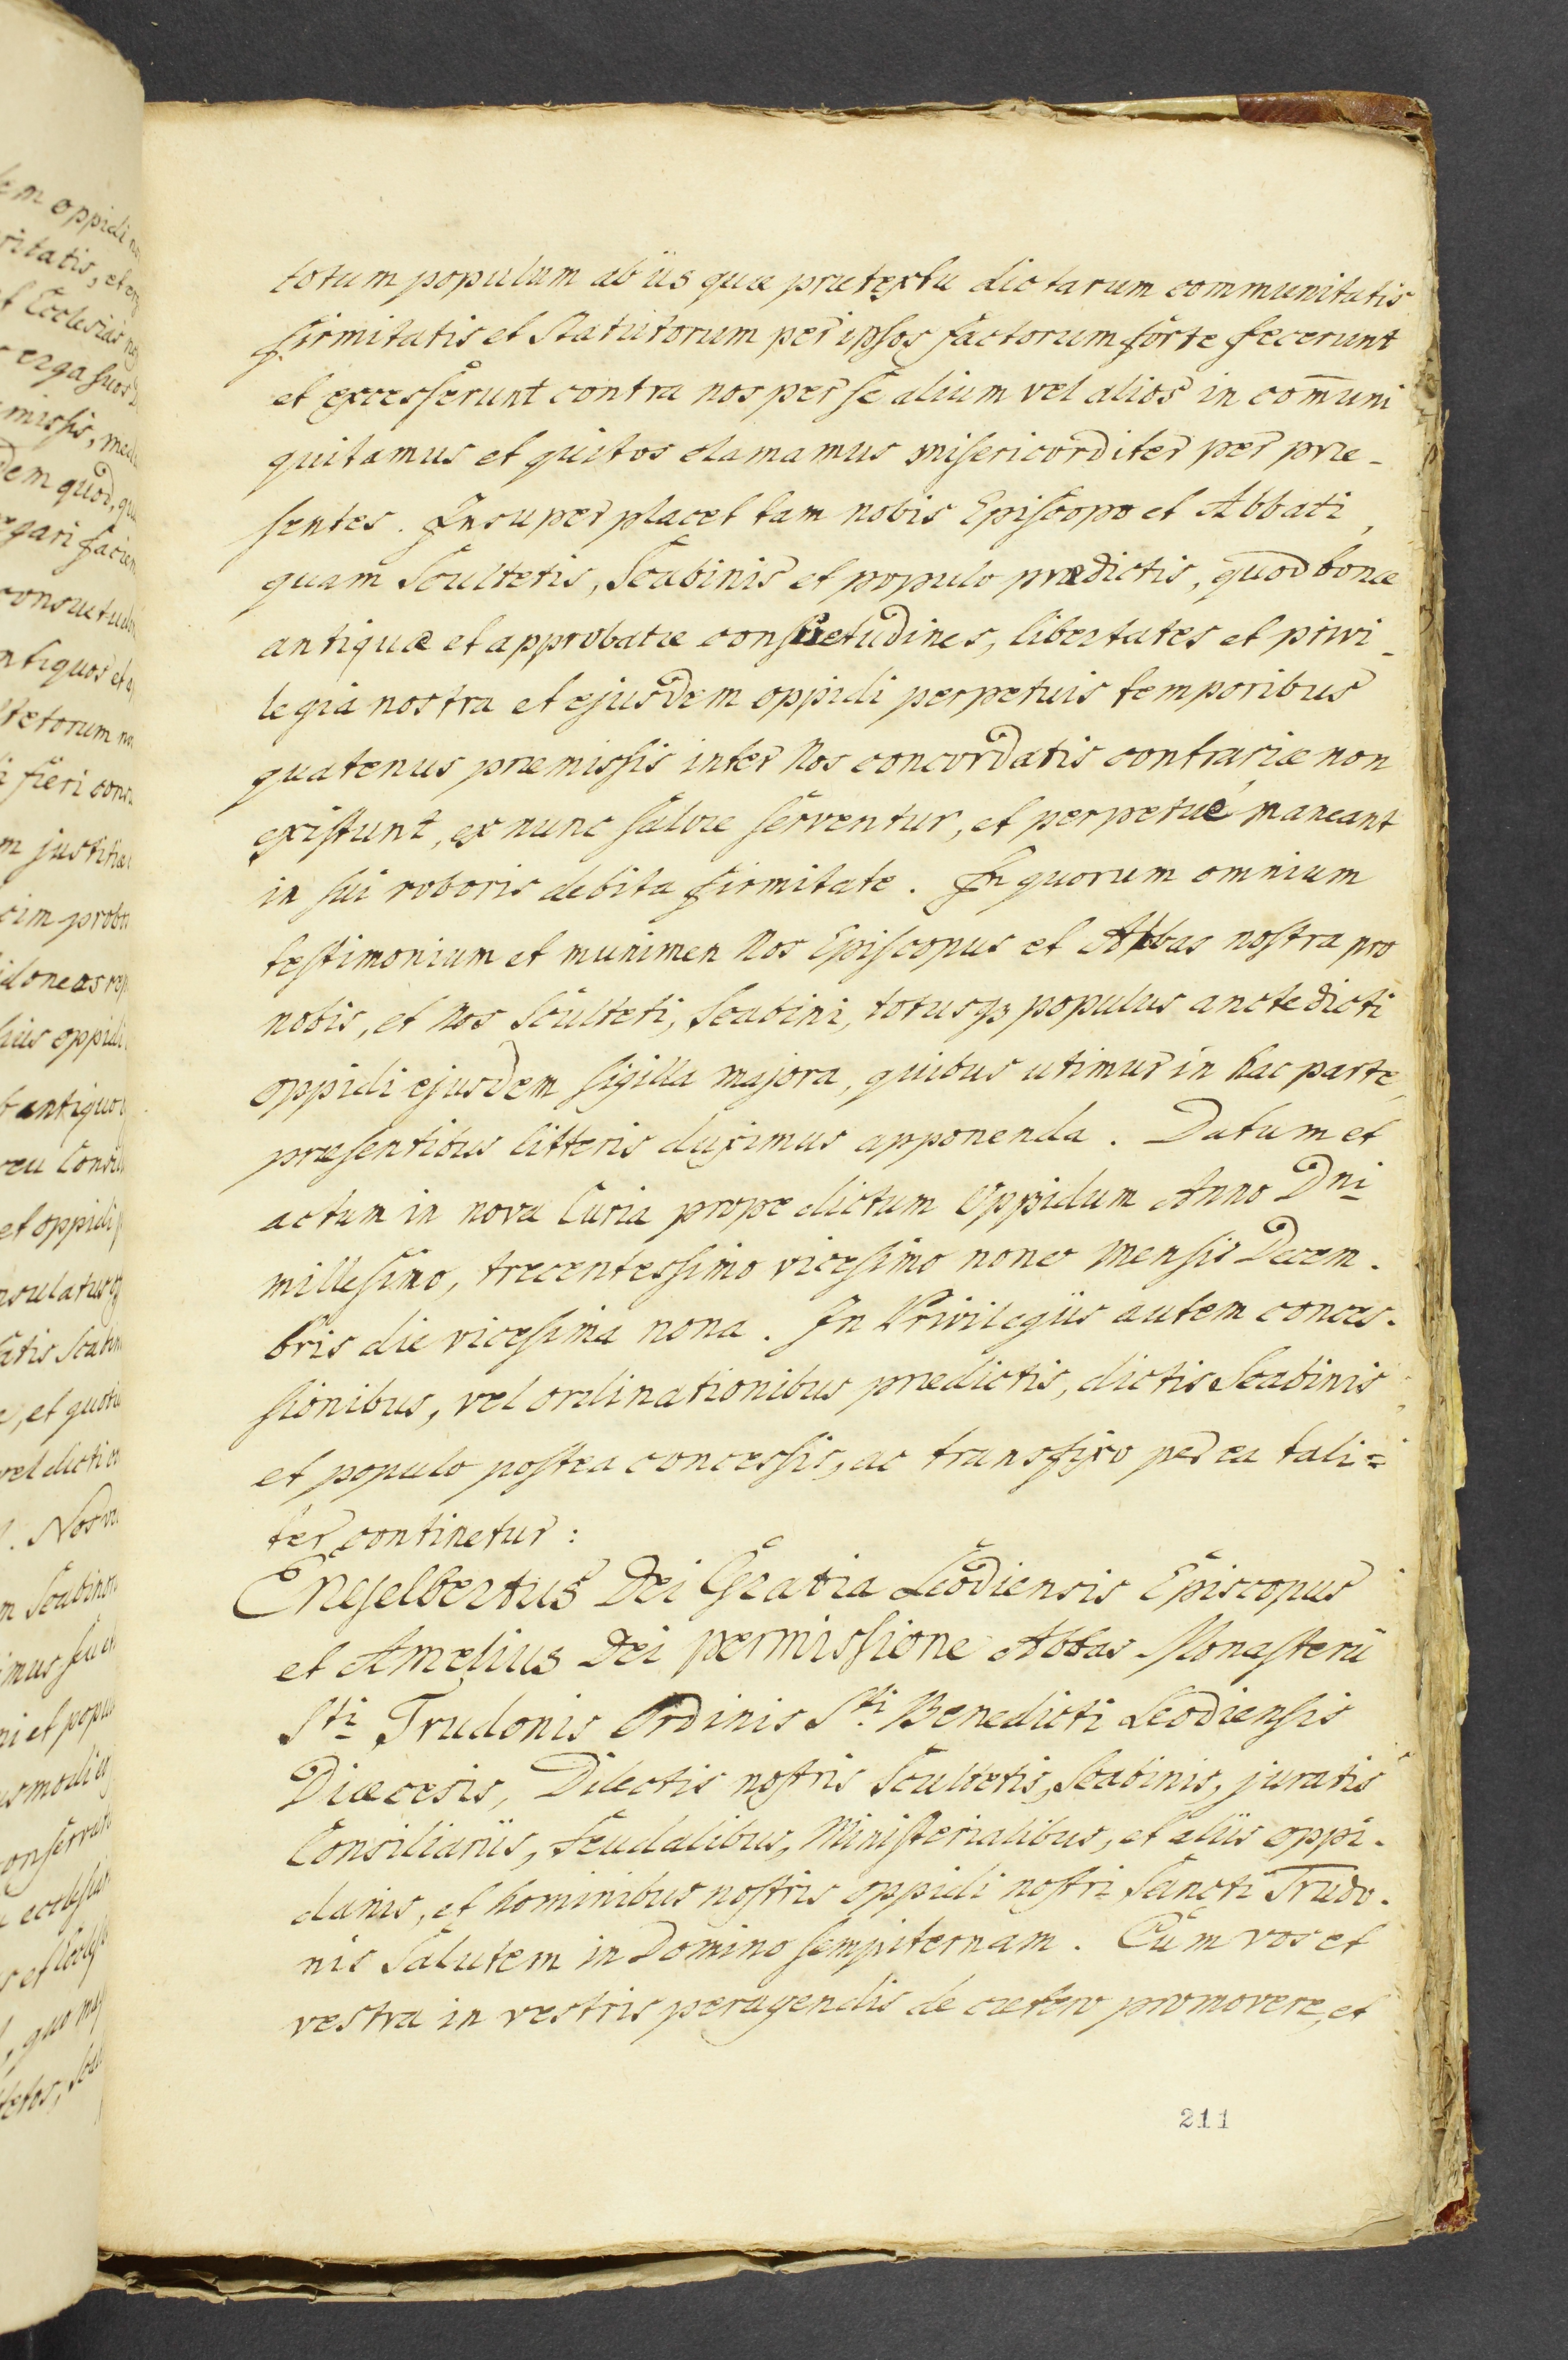 totum populum ab iis quæ prætextu dictarum communitatis
firmitatis et statutorum per ipsos factorum forte fecerunt
et excesserunt contra nos per se alium vel alios in com̄uni
quitamus et quitos clamamus misericorditer per præ-
sentes. Insuper placet tam nobis Episcopo et Abbati,
quam Scultetis, Scabinis et populo prædictis, quod bonæ
antiquæ et approbatæ consuetudines, libertates et privi-
legia nostra et ejusdem oppidi perpetuis temporibus
quatenus præmissis inter Nos concordatis contrariæ non
existunt, ex nunc salvæ serventur, et perpetuè maneant
in sui roboris debita firmitate. In quorum omnium
testimonium et munimen Nos Episcopus et Abbas nostra pro
nobis, et Nos Sculteti, Scabini, totusq3 populus anctedicti
oppidi ejusdem sigilla majora, quibus utimur in hac parte,
præsentibus litteris duximus apponenda. Datum et
actum in nova Curia prope dictum Oppidum Anno Dni
millesimo, trecentessimo vicesimo nono mensis Decem-
bris die vicesima nona. In Privilegiis autem conces-
sionibus, vel ordinationibus prædictis, dictis Scabinis
et populo postea concessis, ac transfixo per ea tali=
ter continetur:
Engelbertus Dei Gratia Leodiensis Episcopus
et Amelius Dei permissione Abbas Monasterii
Sti Trudonis Ordinis Sti Benedicti Leodiensis
Diæcesis, Dilectis nostris Scultetis, Scabinis, juratis
Consiliariis, Feudalibus, Ministerialibus, et aliis oppi-
danis, et hominibus nostris oppidi nostri Sancti Trudo-
nis Salutem in Domino sempiternam. Cùm vos et
vestra in vestris peragendis de cætero promovere, et
211